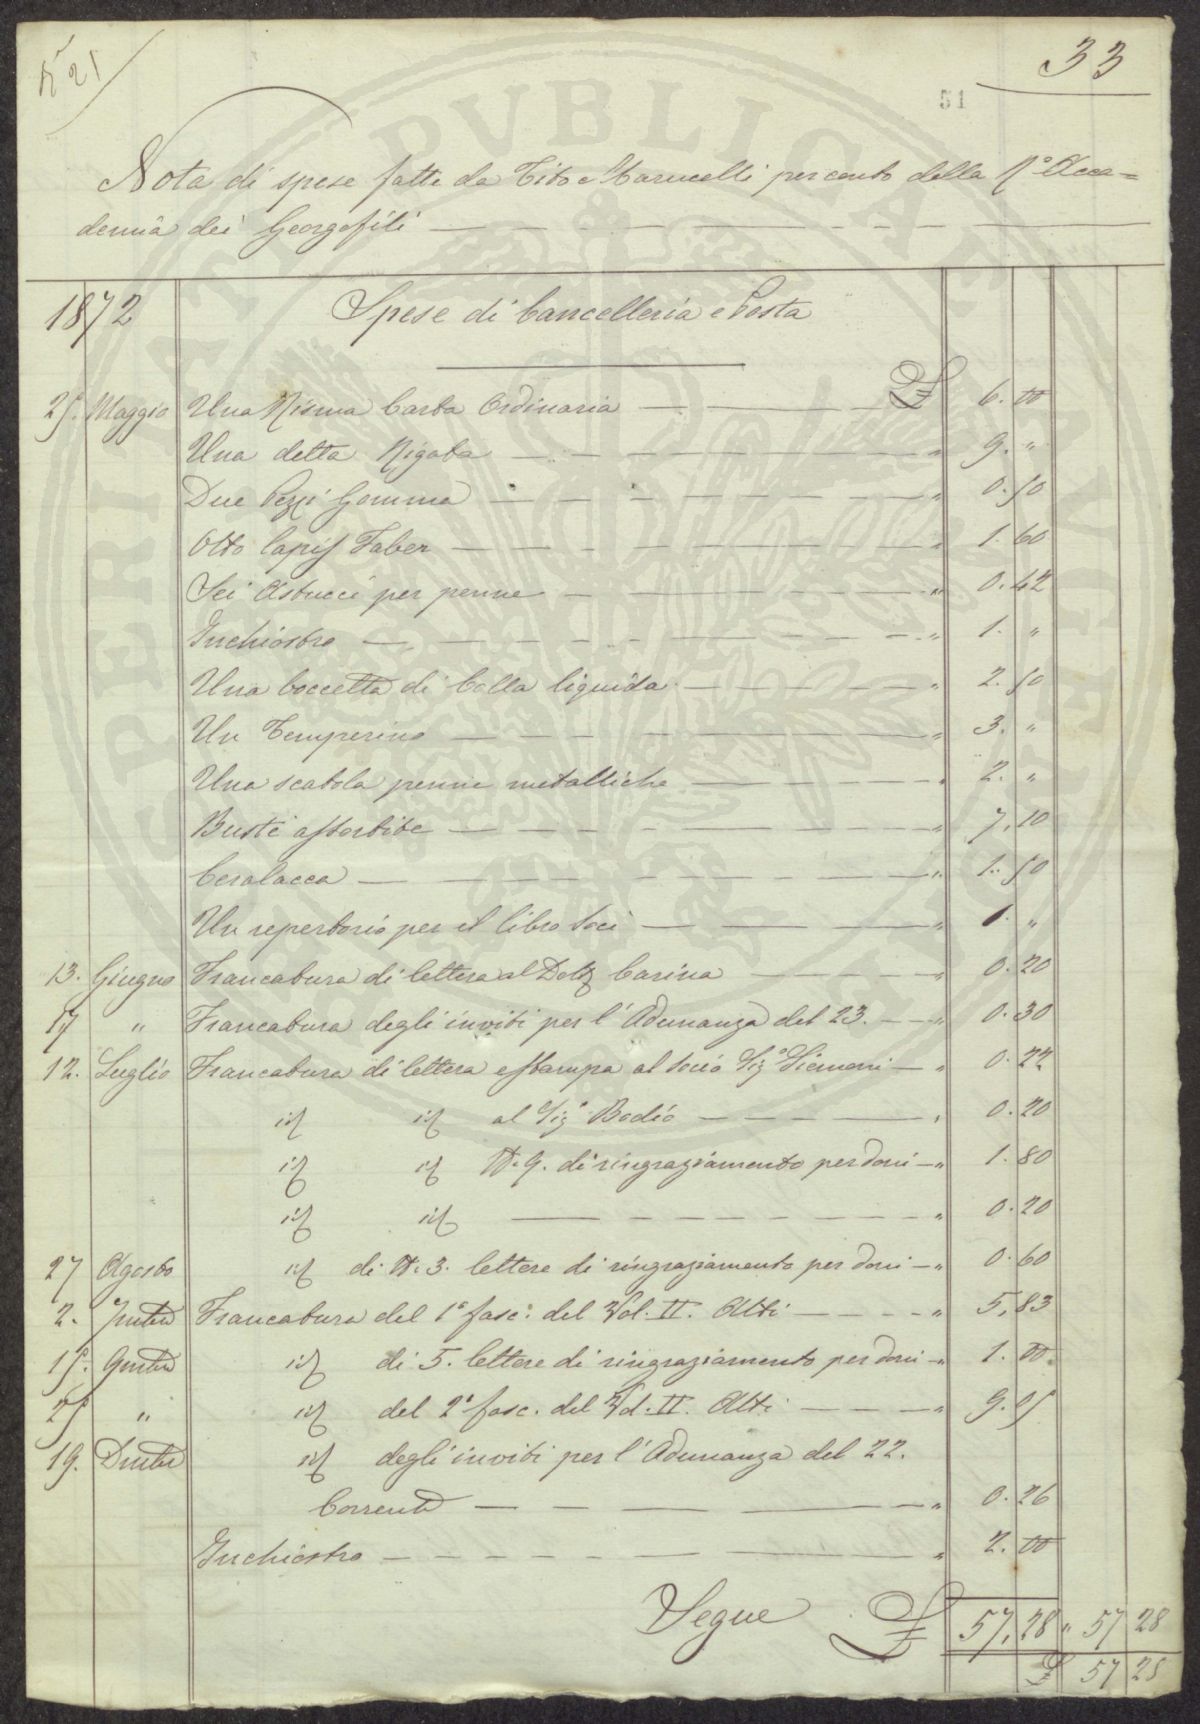 N° 21
33
51
Nota di spese fatte da Tito Marucelli per conto della R.ª Acca=
demia dei Georgofili
1872 Spese di Cancelleria e Posta
25. Maggio Una Risma Carta Ordinaria £ 6. 00
Una detta Rigata " 9. "
Due Pezzi Gomma " 0. 50
Otto lapis Faber " 1. 60
Sei Astucci per penne " 0. 42
Inchiostro " 1. "
Una boccetta di Colla liquida " 2. 50
Un Temperino " 3. "
Una scatola penne metalliche " 2. "
Buste assortite " 7. 10
Ceralacca " 1. 50
Un repertorio per il libro Soci " 1. "
13. Giugno Francatura di lettera al Dott Carina " 0. 20
17 " Francatura degli inviti per l'Adunanza del 23. " 0. 30
12. Luglio Francatura di lettera e stampa al Socio Sig.e Siemoni " 0. 22
id id al Sig.e Bodio " 0. 20
id id N. 9. di ringraziamento per doni " 1. 80
id id " 0. 20
27 Agosto id di N. 3. lettere di ringraziamento per doni " 0. 60
2. 7mbre Francatura del 1° fasc. del Vol. II. Atti " 5, 83
15. 9mbre id di 5. lettere di ringraziamento per doni " 1. 00
25 " id del 2° fasc. del Vol. II. Atti " 9. 05
19. Dmbre id degli inviti per l'Adunanza del 22.
Corrente " 0. 26
Inchiostro " 2. 00
Segue £ 57, 28 " 57 28
£ 57 28